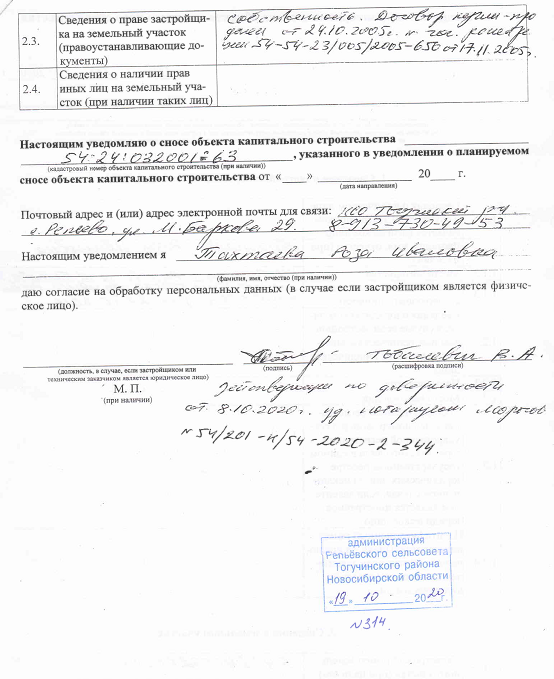 2.3. Сведения о праве застройщи- собственность. Договор купли-про
ка на земельный участок дажи от 24.10.2005г.
(правоустанавливающие до- 54-54-23/005/2005-650 от 17.11.2005г.
кументы)
2.4. Сведения о наличии прав
иных лиц на земельный уча-
сток (при наличии таких лиц)
Настоящим уведомляю о сносе объекта капитального строительства
54:24:032001:63, указанного в уведомлении о планируемом
(кадастровый номер объекта капитального строительства (при наличии))
сносе объекта капитального строительства от « ____ » ____________ 20____ г.
(дата направления)
Почтовый адрес и (или) адрес электронной почты для связи: НСО Тогучинский р-н.
с. Репьево, ул. М. Баркова 29. 8-913-730-49-53
Настоящим уведомлением я Тахтаева Роза Ивановна
(фамилия, имя, отчество (при наличии))
даю согласие на обработку персональных данных (в случае если застройщиком является физиче-
ское лицо).
В. А.
(должность, в случае, если застройщиком или (подпись) (расшифровка подписи)
техническим заказчиком является юридическое лицо)
М. П. Действующая по доверенности
(при наличии) от 8.10.2020г. уд. нотариусом
№ 54/201-н/54-2020-2-344.
администрация
Репьёвского сельсовета
Тогучинского района
Новосибирской области
«19» 10 2020г.
№314.